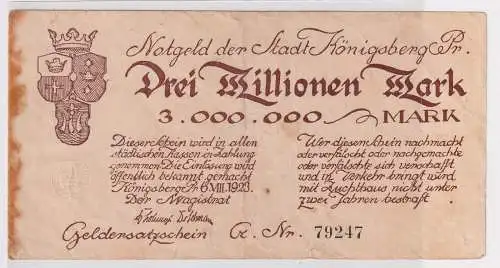 Notgeld der Stadt Königsberg Pr.
Drei Millionen Mark
3.000.000 MARK
Dieser Schein wird in allen
städtischen Kassen in Zahlung
genommen. Die Einlösung wird
öffentlich bekannt gemacht
Königsberg Pr 6.VIII.1923.
Der Magistrat
Wer diesen Schein nachmacht
oder verfälscht oder nachgemachte
oder verfälschte sich verschafft
und in Verkehr bringt wird
mit Zuchthaus nicht unter
zwei Jahren bestraft.
Geldersatzschein R. Nr. 79247